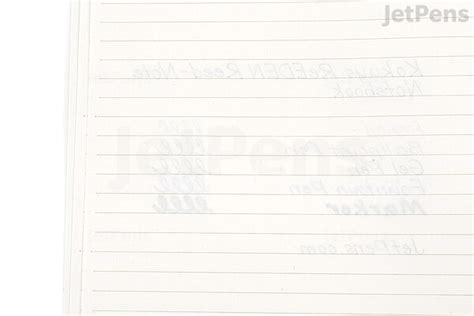 JetPens
Kokuyo ReEDEN Reed Note
Notebook
JetPens
Pencil
Ballpoint Pen
Gel Pen
Fountain Pen
Marker
JetPens.com